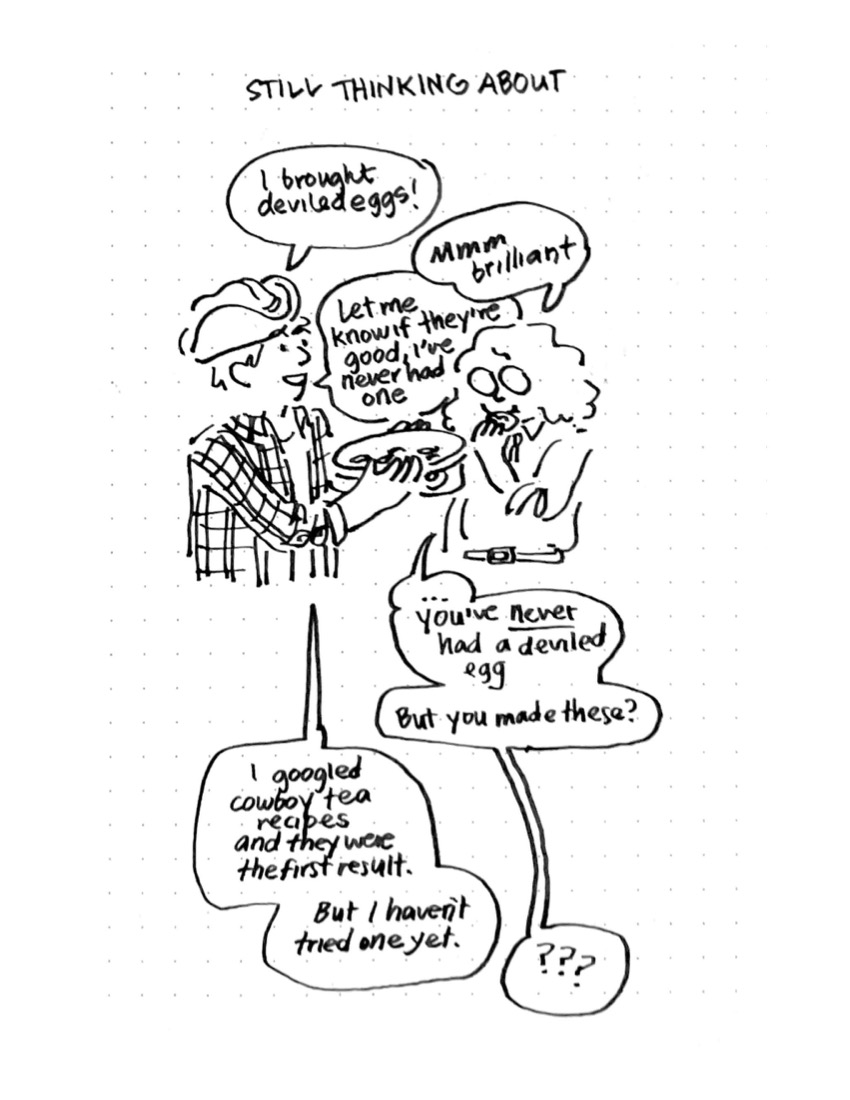 STILL THINKING ABOUT
I brought
deviled eggs!
Mmm
brilliant
Let me
know if they're
good, I've
never had
one
...
you've never
had a deviled
egg
But you made these?
I googled
cowboy tea
recipes
and they were
the first result.
But I haven't
tried one yet.
???